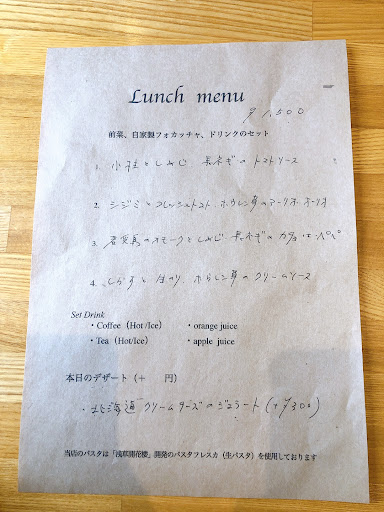 Lunch menu
¥1,500
前菜、自家製フォカッチャ、ドリンクのセット
1. 小柱としめじ 長ネギの トマトソース
2. シジミとフレッシュトマト、ホウレン草のアーリオ オーリオ
3. のスモークとしめじ 長ネギの カチョ エ ペペ
4. しらすと 生のり、ホウレン草の クリームソース
Set Drink
・Coffee（Hot /Ice） ・orange juice
・Tea（Hot/Ice） ・apple juice
本日のデザート（+ 円）
・北海道 クリームチーズのジェラート (+¥300)
当店のパスタは「浅草開花楼」開発のパスタフレスカ（生パスタ）を使用しております